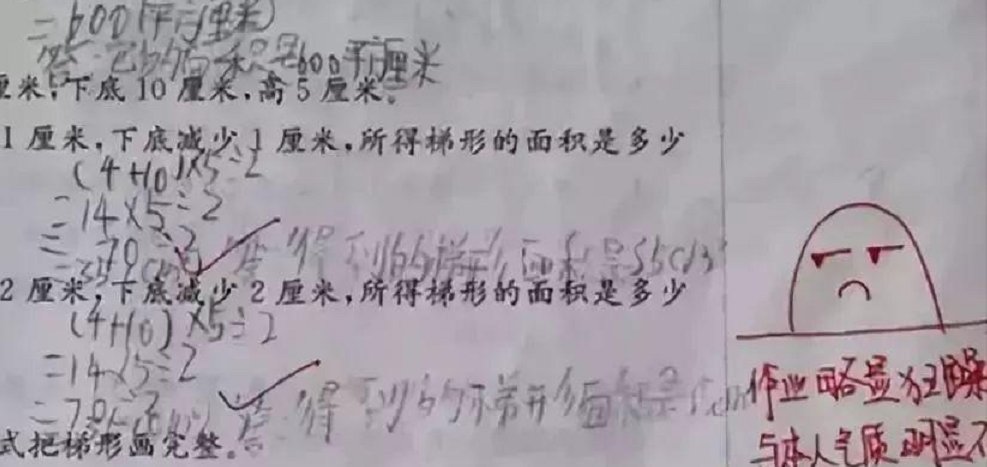 =600(平方厘米)
答:它的面积是600平方厘米
厘米,下底10厘米,高5厘米。
1厘米,下底减少1厘米,所得梯形的面积是多少
(4+10)×5÷2
=14×5÷2
=70÷2
=35(cm²) 答:得到的梯形面积是35cm²
2厘米,下底减少2厘米,所得梯形的面积是多少
(4+10)×5÷2
=14×5÷2
=70÷2
答:得到的梯形面积是
式把梯形画完整。
作业略显狂躁
与本人气质明显不